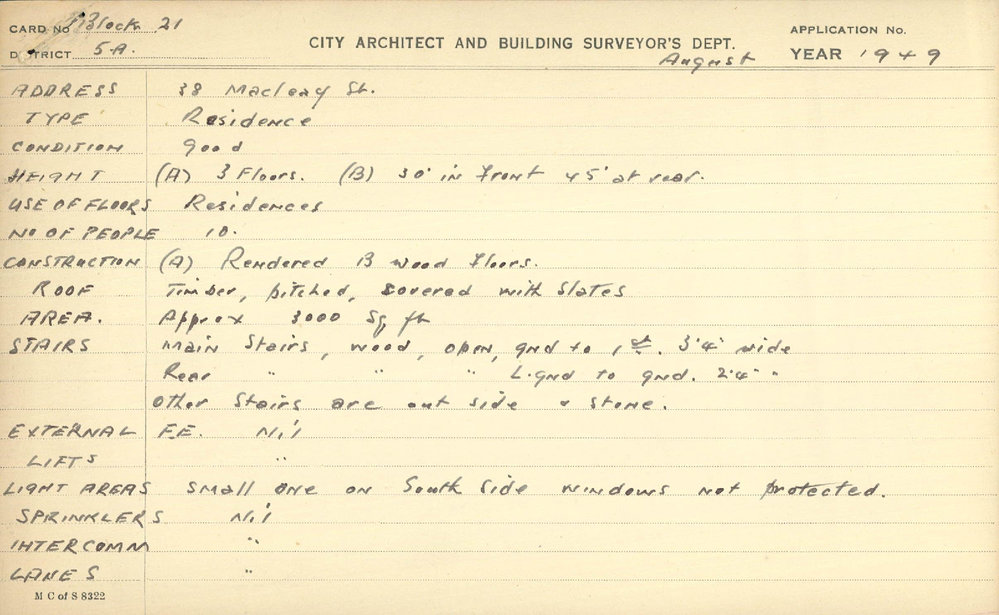 CARD NO Block 21
DISTRICT 5A.
CITY ARCHITECT AND BUILDING SURVEYOR'S DEPT.
APPLICATION No.
August YEAR 1949
ADDRESS 38 Macleay St.
TYPE Residence
CONDITION good
HEIGHT (A) 3 Floors. (B) 30' in front 45' at rear.
USE OF FLOORS Residences
NO OF PEOPLE 10.
CONSTRUCTION (A) Rendered B wood floors.
ROOF Timber, pitched, covered with Slates
AREA. Approx 3000 Sq ft
STAIRS Main Stairs, wood, open, gnd to 1st. 3'4" wide
Rear " " " L.gnd to gnd. 2'4" "
Other Stairs are out side & stone.
EXTERNAL F.E. Nil
LIFTS "
LIGHT AREAS Small one on South Side windows not protected.
SPRINKLERS Nil
INTERCOMM "
LANES "
M C of S 8322